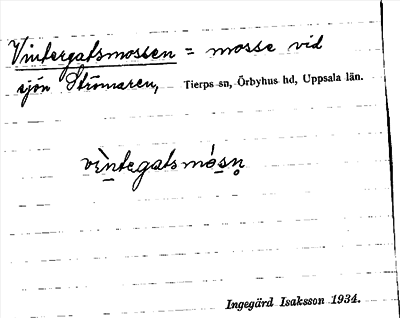 Vintergatsmossen = mosse vid
sjön Strömaren, Tierps sn, Örbyhus hd, Uppsala län.
vèntegatsmósn̥
Ingegärd Isaksson 1934.